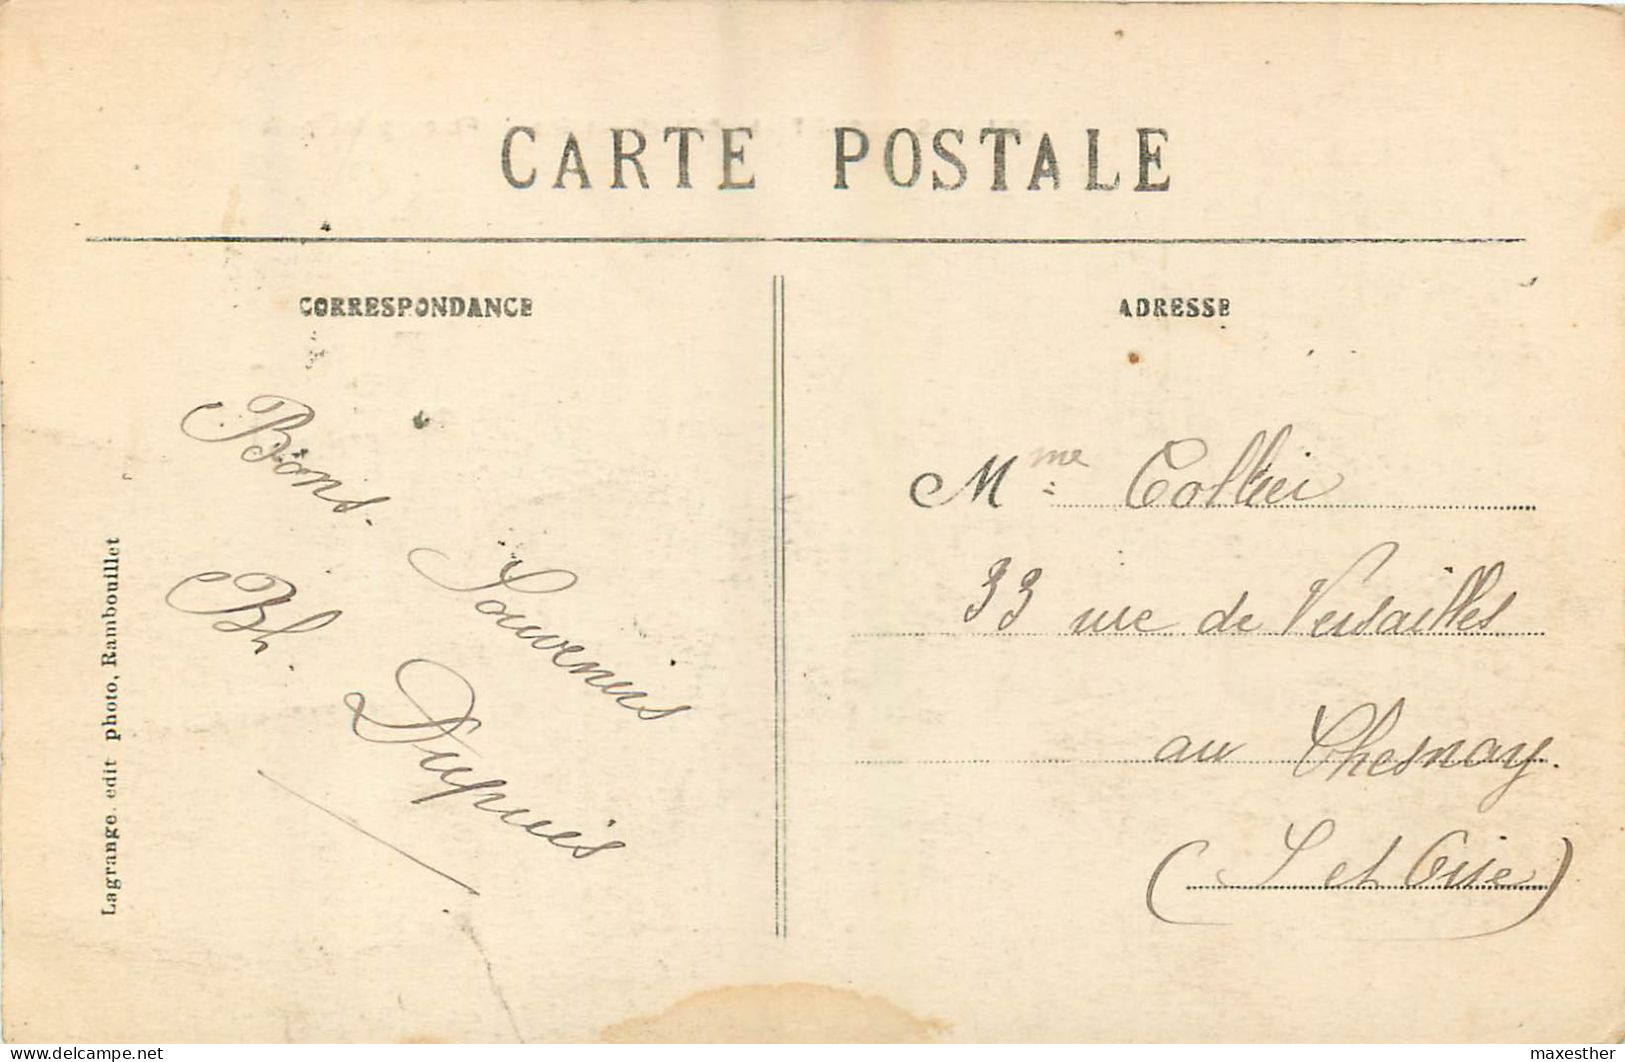 CARTE POSTALE
CORRESPONDANCE
Bons
Souvenirs
Bh. Dupuis
Lagrange. edit photo, Rambouillet
ADRESSE
Mme Collier
33 rue de Versailles
au Chesnay.
(S et Oise)
delcampe.net
maxesther